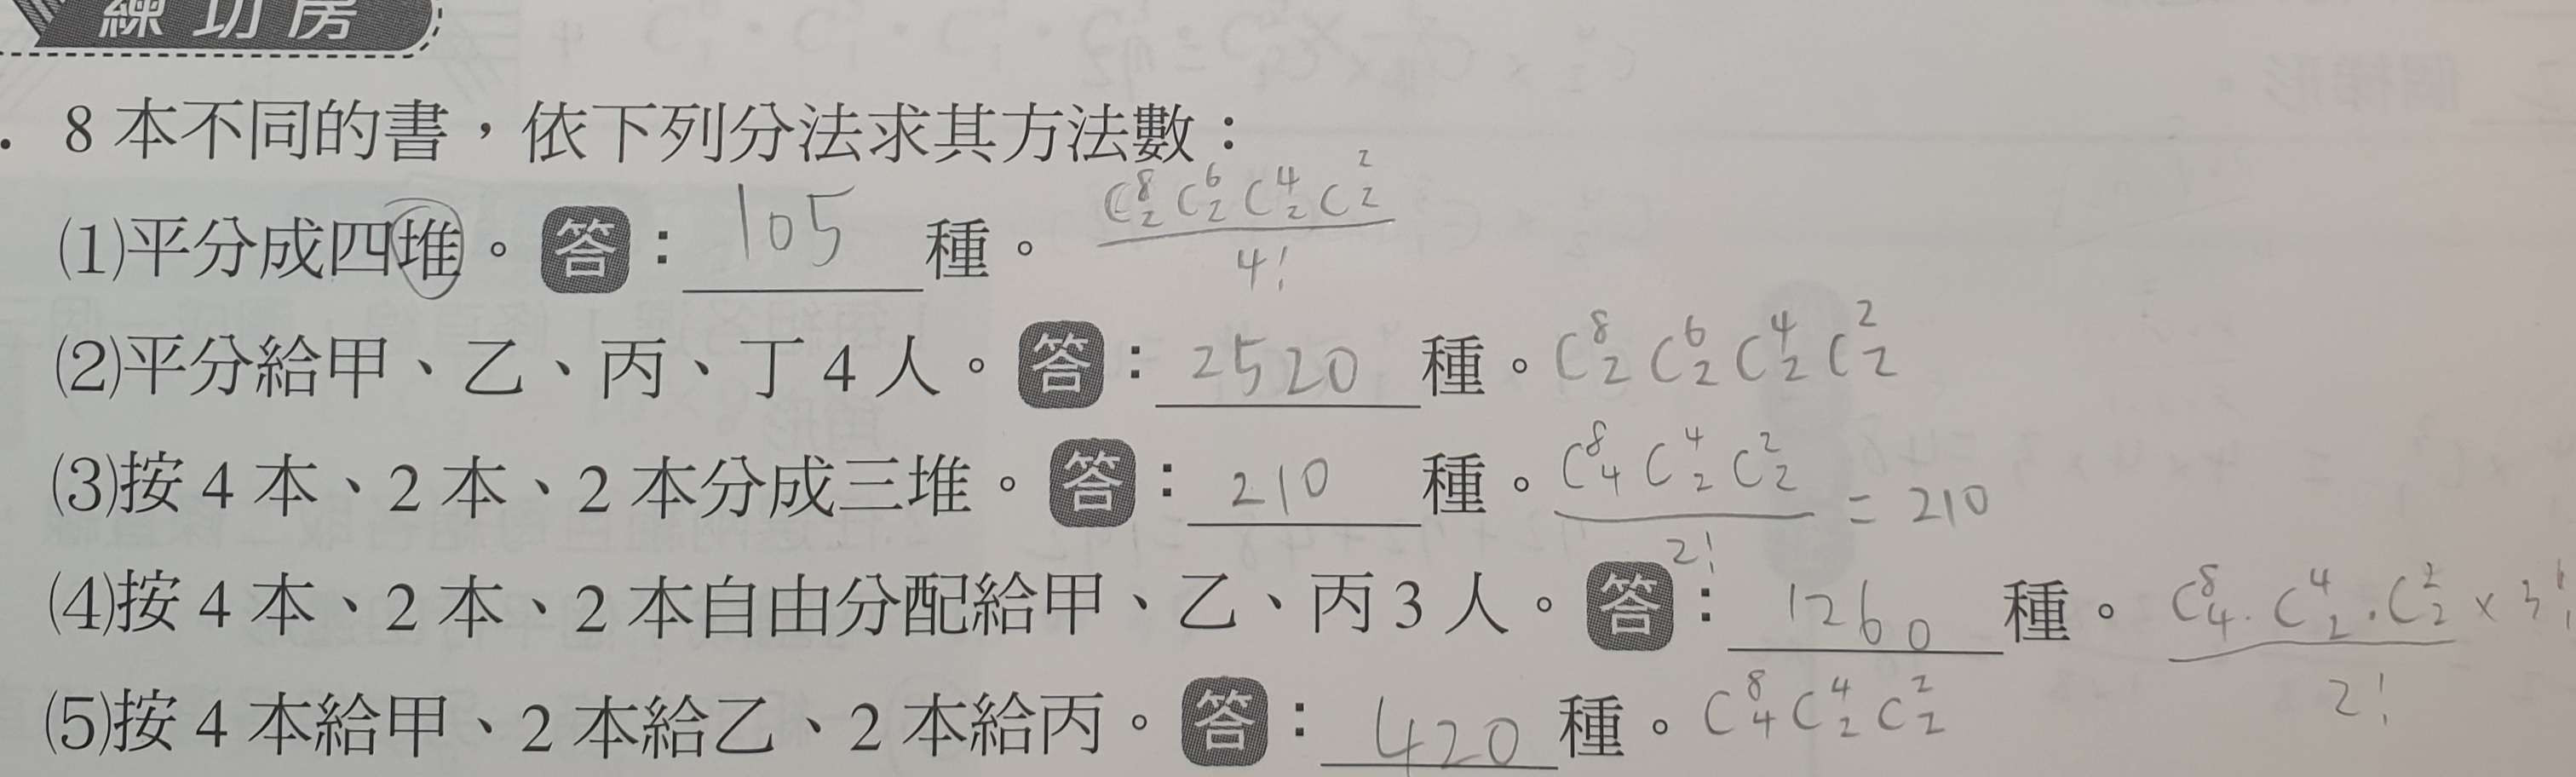 練功房
8 本不同的書，依下列分法求其方法數：
⑴平分成四堆。答：105 種。 C⁸₂ C⁶₂ C⁴₂ C²₂ / 4!
⑵平分給甲、乙、丙、丁 4 人。答：2520 種。 C⁸₂ C⁶₂ C⁴₂ C²₂
⑶按 4 本、2 本、2 本分成三堆。答：210 種。 C⁸₄ C⁴₂ C²₂ / 2! = 210
⑷按 4 本、2 本、2 本自由分配給甲、乙、丙 3 人。答：1260 種。 C⁸₄ · C⁴₂ · C²₂ × 3! / 2!
⑸按 4 本給甲、2 本給乙、2 本給丙。答：420 種。 C⁸₄ C⁴₂ C²₂